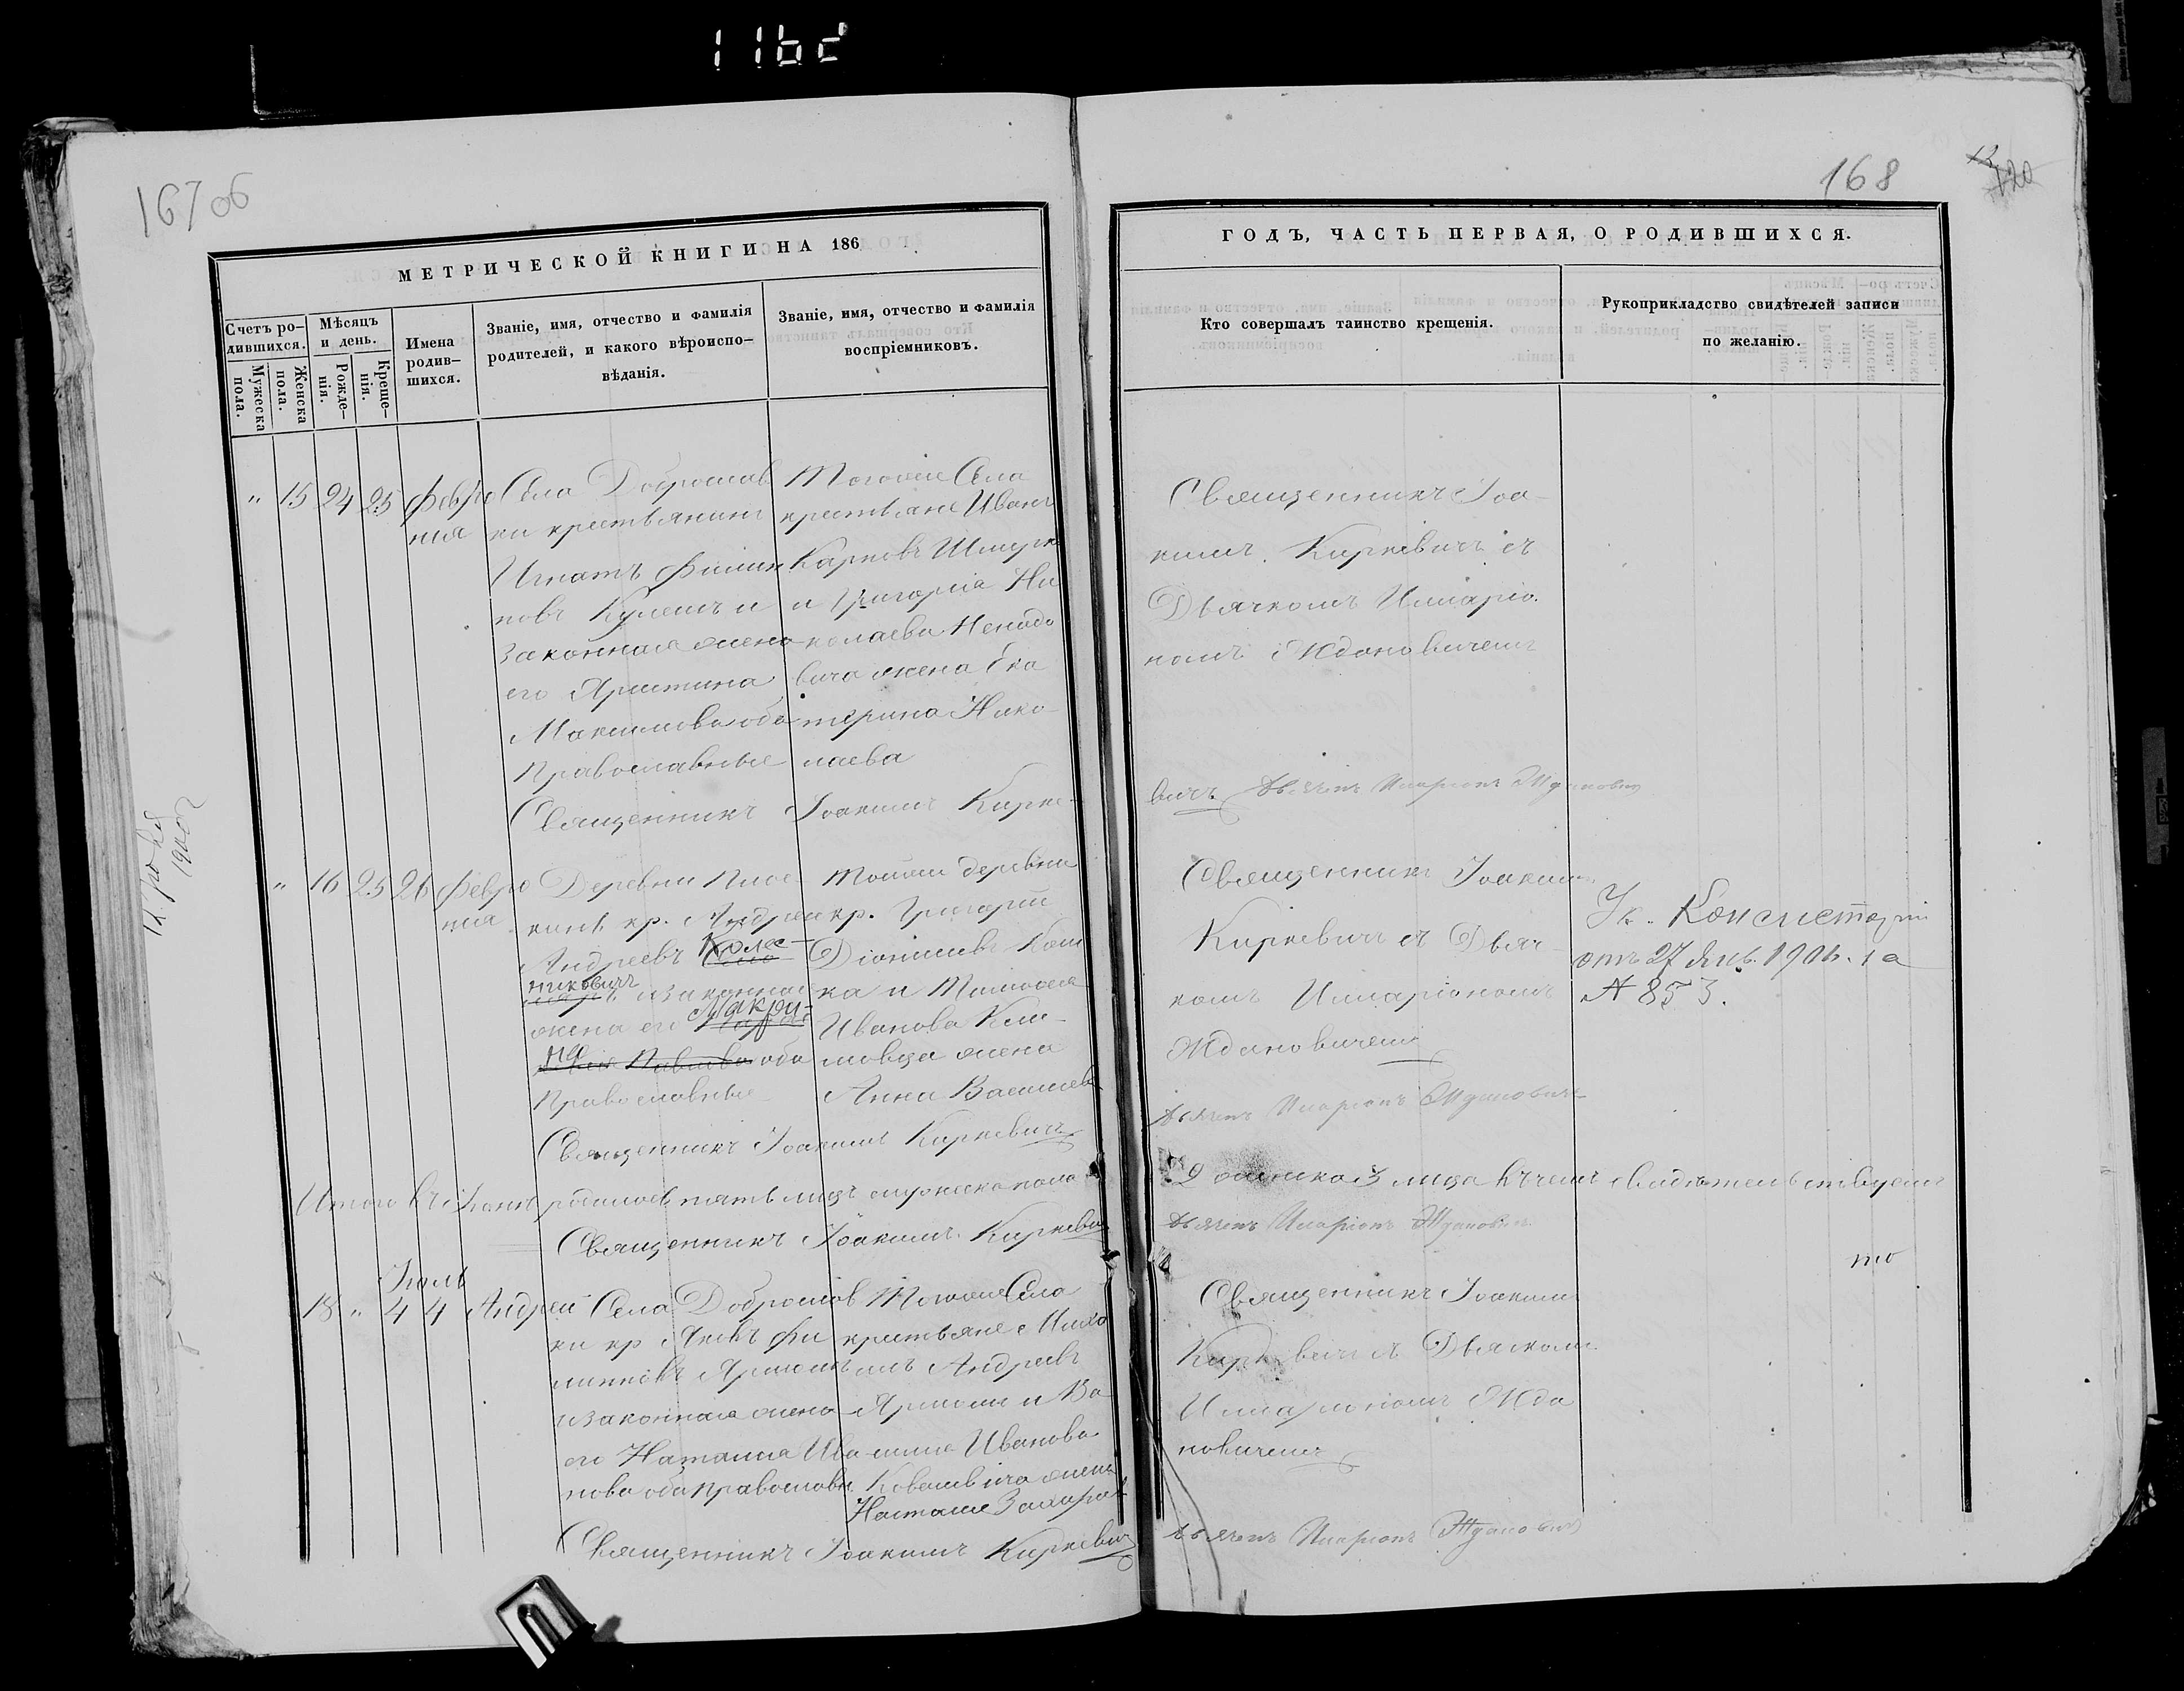 167об
168
МЕТРИЧЕСКОЙ КНИГИ НА 186
ГОДЪ, ЧАСТЬ ПЕРВАЯ, О РОДИВШИХСЯ.
Счетъ ро-
дившихся.
Мужеска
пола.
Женска
пола.
Мѣсяцъ
и день.
Рожде-
нія.
Креще-
нія.
Имена
родив-
шихся.
Званіе, имя, отчество и фамилія
родителей, и какого вѣроиспо-
вѣданія.
Званіе, имя, отчество и фамилія
воспріемниковъ.
Кто совершалъ таинство крещенія.
Рукоприкладство свидѣтелей записи
по желанію.
" 15 24 25 Февро
нія
Села Доброслав
ки крестьянинъ
Игнатъ Филип
повъ Кулешъ и
законная жена
его Христина
Максимова оба
Православные
Тогоже Села
крестьяне Иванъ
Карповъ
и Григорія Ни
колаева Ненадо
вича жена Ека
терина Нико-
лаева
Священникъ Іоа-
кимъ Киркевичъ съ
Дьячкомъ Иларіо-
номъ Ждановичемъ
Священникъ Іоакимъ Кирке-
вичъ Дьячекъ Иларіонъ Ждановичъ
" 16 25 26 Февро
нія
Деревни Плос-
кинь кр. Андрей
Андреевъ Колес-
никовичъ
и законная
жена его Макри-
на
оба
Православные
Тойже деревни
кр. Григорій
Діонисіевъ Кош
ка и Тимофея
Иванова Кли-
мовца жена
Анна Васильева
Священникъ Іоакимъ
Киркевичъ съ Дьяч-
комъ Иларіономъ
Ждановичемъ
Ук. Консисторіи
отъ 27 Янв. 1906. за
№ 853.
Священникъ Іоакимъ Киркевичъ
Дьячекъ Иларіонъ Ждановичъ
Итого въ Іюнѣ родилось пять лицъ мужеска пола
а женска 3 лица въ чемъ свидѣтельствуемъ
Священникъ Іоакимъ Киркевичъ
Дьячекъ Иларіонъ Ждановичъ
Іюль
18 " 4 4 Андрей
Села Доброслав
ки кр Яковъ Фи
липповъ
и законная жена
его Наталия Ива
нова оба православн.
Тогоже Села
крестьяне Миха
илъ Андреевъ
и Ва
силия Иванова
Ковалевича жена
Настасія Захаров
Священникъ Іоакимъ
Киркевичъ съ Дьячкомъ
Иларіономъ Жда
новичемъ
Священникъ Іоакимъ Киркевичъ
Дьячекъ Иларіонъ Ждановичъ